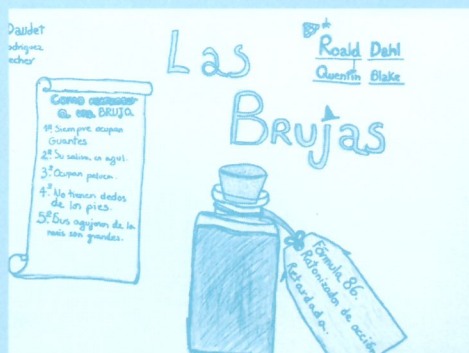 Daudet
Las
Roald Dahl
Quentin Blake
Brujas
Como
a una BRUJA
1º Siempre ocupan
Guantes
2º Su saliva es azul.
3º Ocupan peluca.
4º No tienen dedos
de los pies.
5º Sus agujeros de la
nariz son grandes.
Fórmula 86.
Ratonizador de acción
Retardada.